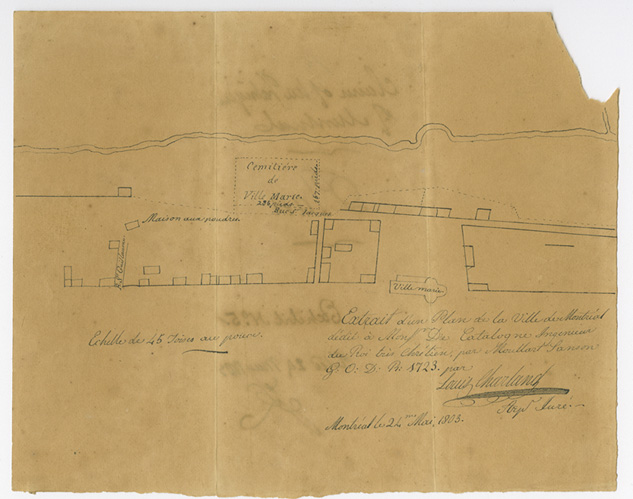 Cemitiére
de
Ville Marie.
Rue St Jacques
Maison aux poudres
Ville marie
Echelle de 45 Toises au pouce.
Extrait d'un Plan de la Ville de Montréal
dédié à Monsr De Catalogne Ingenieur
du Roi très Chrétien, par Moullart Sanson
G. O: D. R: 1723. par
Louis Charland
Arpr Juré.
Montréal le 24me Mai, 1803.